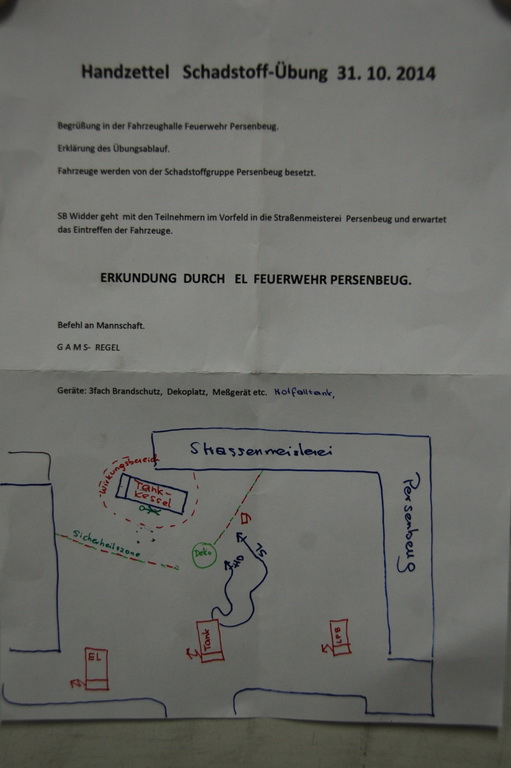 Handzettel Schadstoff-Übung 31. 10. 2014
Begrüßung in der Fahrzeughalle Feuerwehr Persenbeug.
Erklärung des Übungsablauf.
Fahrzeuge werden von der Schadstoffgruppe Persenbeug besetzt.
SB Widder geht mit den Teilnehmern im Vorfeld in die Straßenmeisterei Persenbeug und erwartet
das Eintreffen der Fahrzeuge.
ERKUNDUNG DURCH EL FEUERWEHR PERSENBEUG.
Befehl an Mannschaft.
G A M S- REGEL
Geräte: 3fach Brandschutz, Dekoplatz, Meßgerät etc. Notfalltank,
Strassenmeisterei
Persenbeug
Wirkungsbereich
Tank-
Kessel
Sicherheitszone
Deko
HD
SL
Tank
LFB
EL